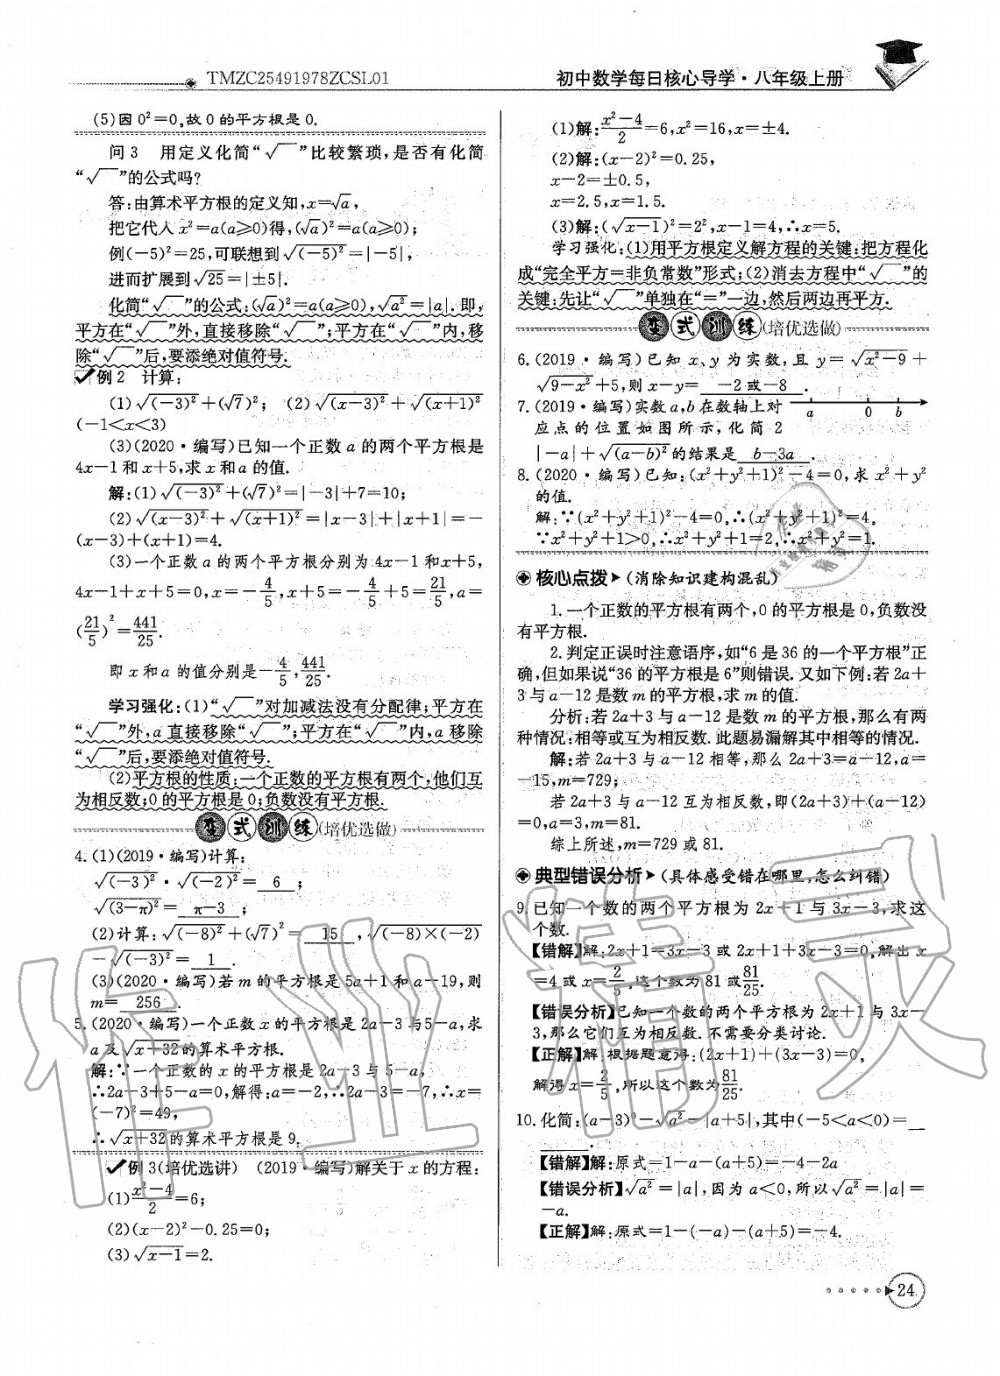 TMZC25491978ZCSL01
初中数学每日核心导学·八年级上册
(5)因0²=0,故0的平方根是0.
问3 用定义化简“√‾”比较繁琐,是否有化简
“√‾”的公式吗?
答:由算术平方根的定义知,x=√a,
把它代入x²=a(a≥0)得,(√a)²=a(a≥0);
例(-5)²=25,可联想到√(-5)²=|-5|,
进而扩展到√25=|±5|.
化简“√‾”的公式:(√a)²=a(a≥0),√a²=|a|.即,
平方在“√‾”外,直接移除“√‾”;平方在“√‾”内,移
除“√‾”后,要添绝对值符号.
✓例2 计算:
(1)√(-3)²+(√7)²; (2)√(x-3)²+√(x+1)²
(-1<x<3)
(3)(2020·编写)已知一个正数a的两个平方根是
4x-1和x+5,求x和a的值.
解:(1)√(-3)²+(√7)²=|-3|+7=10;
(2)√(x-3)²+√(x+1)²=|x-3|+|x+1|=-
(x-3)+(x+1)=4.
(3)一个正数a的两个平方根分别为4x-1和x+5,
4x-1+x+5=0,x=-4/5,x+5=-4/5+5=21/5,a=
(21/5)²=441/25.
即x和a的值分别是-4/5,441/25.
学习强化:(1)“√‾”对加减法没有分配律;平方在
“√‾”外,a直接移除“√‾”;平方在“√‾”内,a移除
“√‾”后,要添绝对值符号.
(2)平方根的性质:一个正数的平方根有两个,他们互
为相反数;0的平方根是0;负数没有平方根.
变式训练(培优选做)
4.(1)(2019·编写)计算:
√(-3)²·√(-2)²=6;
√(3-π)²=π-3;
(2)计算:√(-8)²+(√7)²=15,√(-8)×(-2)
-√(-3)²=1.
(3)(2020·编写)若m的平方根是5a+1和a-19,则
m=256.
5.(2020·编写)一个正数x的平方根是2a-3与5-a,求
a及√x+32的算术平方根.
解:∵一个正数的x的平方根是2a-3与5-a,
∴2a-3+5-a=0,解得:a=-2,∴2a-3=-7,∴x=
(-7)²=49,
∴√x+32的算术平方根是9.
✓例3(培优选讲) (2019·编写)解关于x的方程:
(1)(x²-4)/2=6;
(2)(x-2)²-0.25=0;
(3)√x-1=2.
(1)解:(x²-4)/2=6,x²=16,x=±4.
(2)解:(x-2)²=0.25,
x-2=±0.5,
x=2.5,x=1.5.
(3)解:(√x-1)²=2²,x-1=4,∴x=5.
学习强化:(1)用平方根定义解方程的关键:把方程化
成“完全平方=非负常数”形式;(2)消去方程中“√‾”的
关键:先让“√‾”单独在“=”一边,然后两边再平方.
变式训练(培优选做)
6.(2019·编写)已知x、y为实数,且y=√x²-9+
√9-x²+5,则x-y=-2或-8.
7.(2019·编写)实数a,b在数轴上对
应点的位置如图所示,化简2
|-a|+√(a-b)²的结果是b-3a.
a 0 b
8.(2020·编写)已知:(x²+y²+1)²-4=0,求x²+y²
的值.
解:∵(x²+y²+1)²-4=0,∴(x²+y²+1)²=4,
∵x²+y²+1>0,∴x²+y²+1=2,∴x²+y²=1.
核心点拨➤(消除知识建构混乱)
1.一个正数的平方根有两个,0的平方根是0,负数没
有平方根.
2.判定正误时注意语序,如“6是36的一个平方根”正
确,但如果说“36的平方根是6”则错误.又如下例:若2a+
3与a-12是数m的平方根,求m的值.
分析:若2a+3与a-12是数m的平方根,那么有两
种情况:相等或互为相反数.此题易漏解其中相等的情况.
解:若2a+3与a-12相等,那么2a+3=a-12,a=
-15,m=729;
若2a+3与a-12互为相反数,即(2a+3)+(a-12)
=0,a=3,m=81.
综上所述,m=729或81.
典型错误分析➤(具体感受错在哪里,怎么纠错)
9.已知一个数的两个平方根为2x+1与3x-3,求这
个数.
【错解】解:2x+1=3x-3或2x+1+3x-3=0,解出x
=4或x=2/5,这个数为81或81/25.
【错误分析】已知一个数的两个平方根为2x+1与3x-
3,那么它们互为相反数.不需要分类讨论.
【正解】解 根据题意得:(2x+1)+(3x-3)=0,
解得x=2/5,所以这个数为81/25.
10.化简:(a-3)⁰-√a²-|a+5|,其中(-5<a<0)=__
【错解】解:原式=1-a-(a+5)=-4-2a
【错误分析】√a²=|a|,因为a<0,所以√a²=|a|=
-a.
【正解】解:原式=1-(-a)-(a+5)=-4.
24
作业精灵